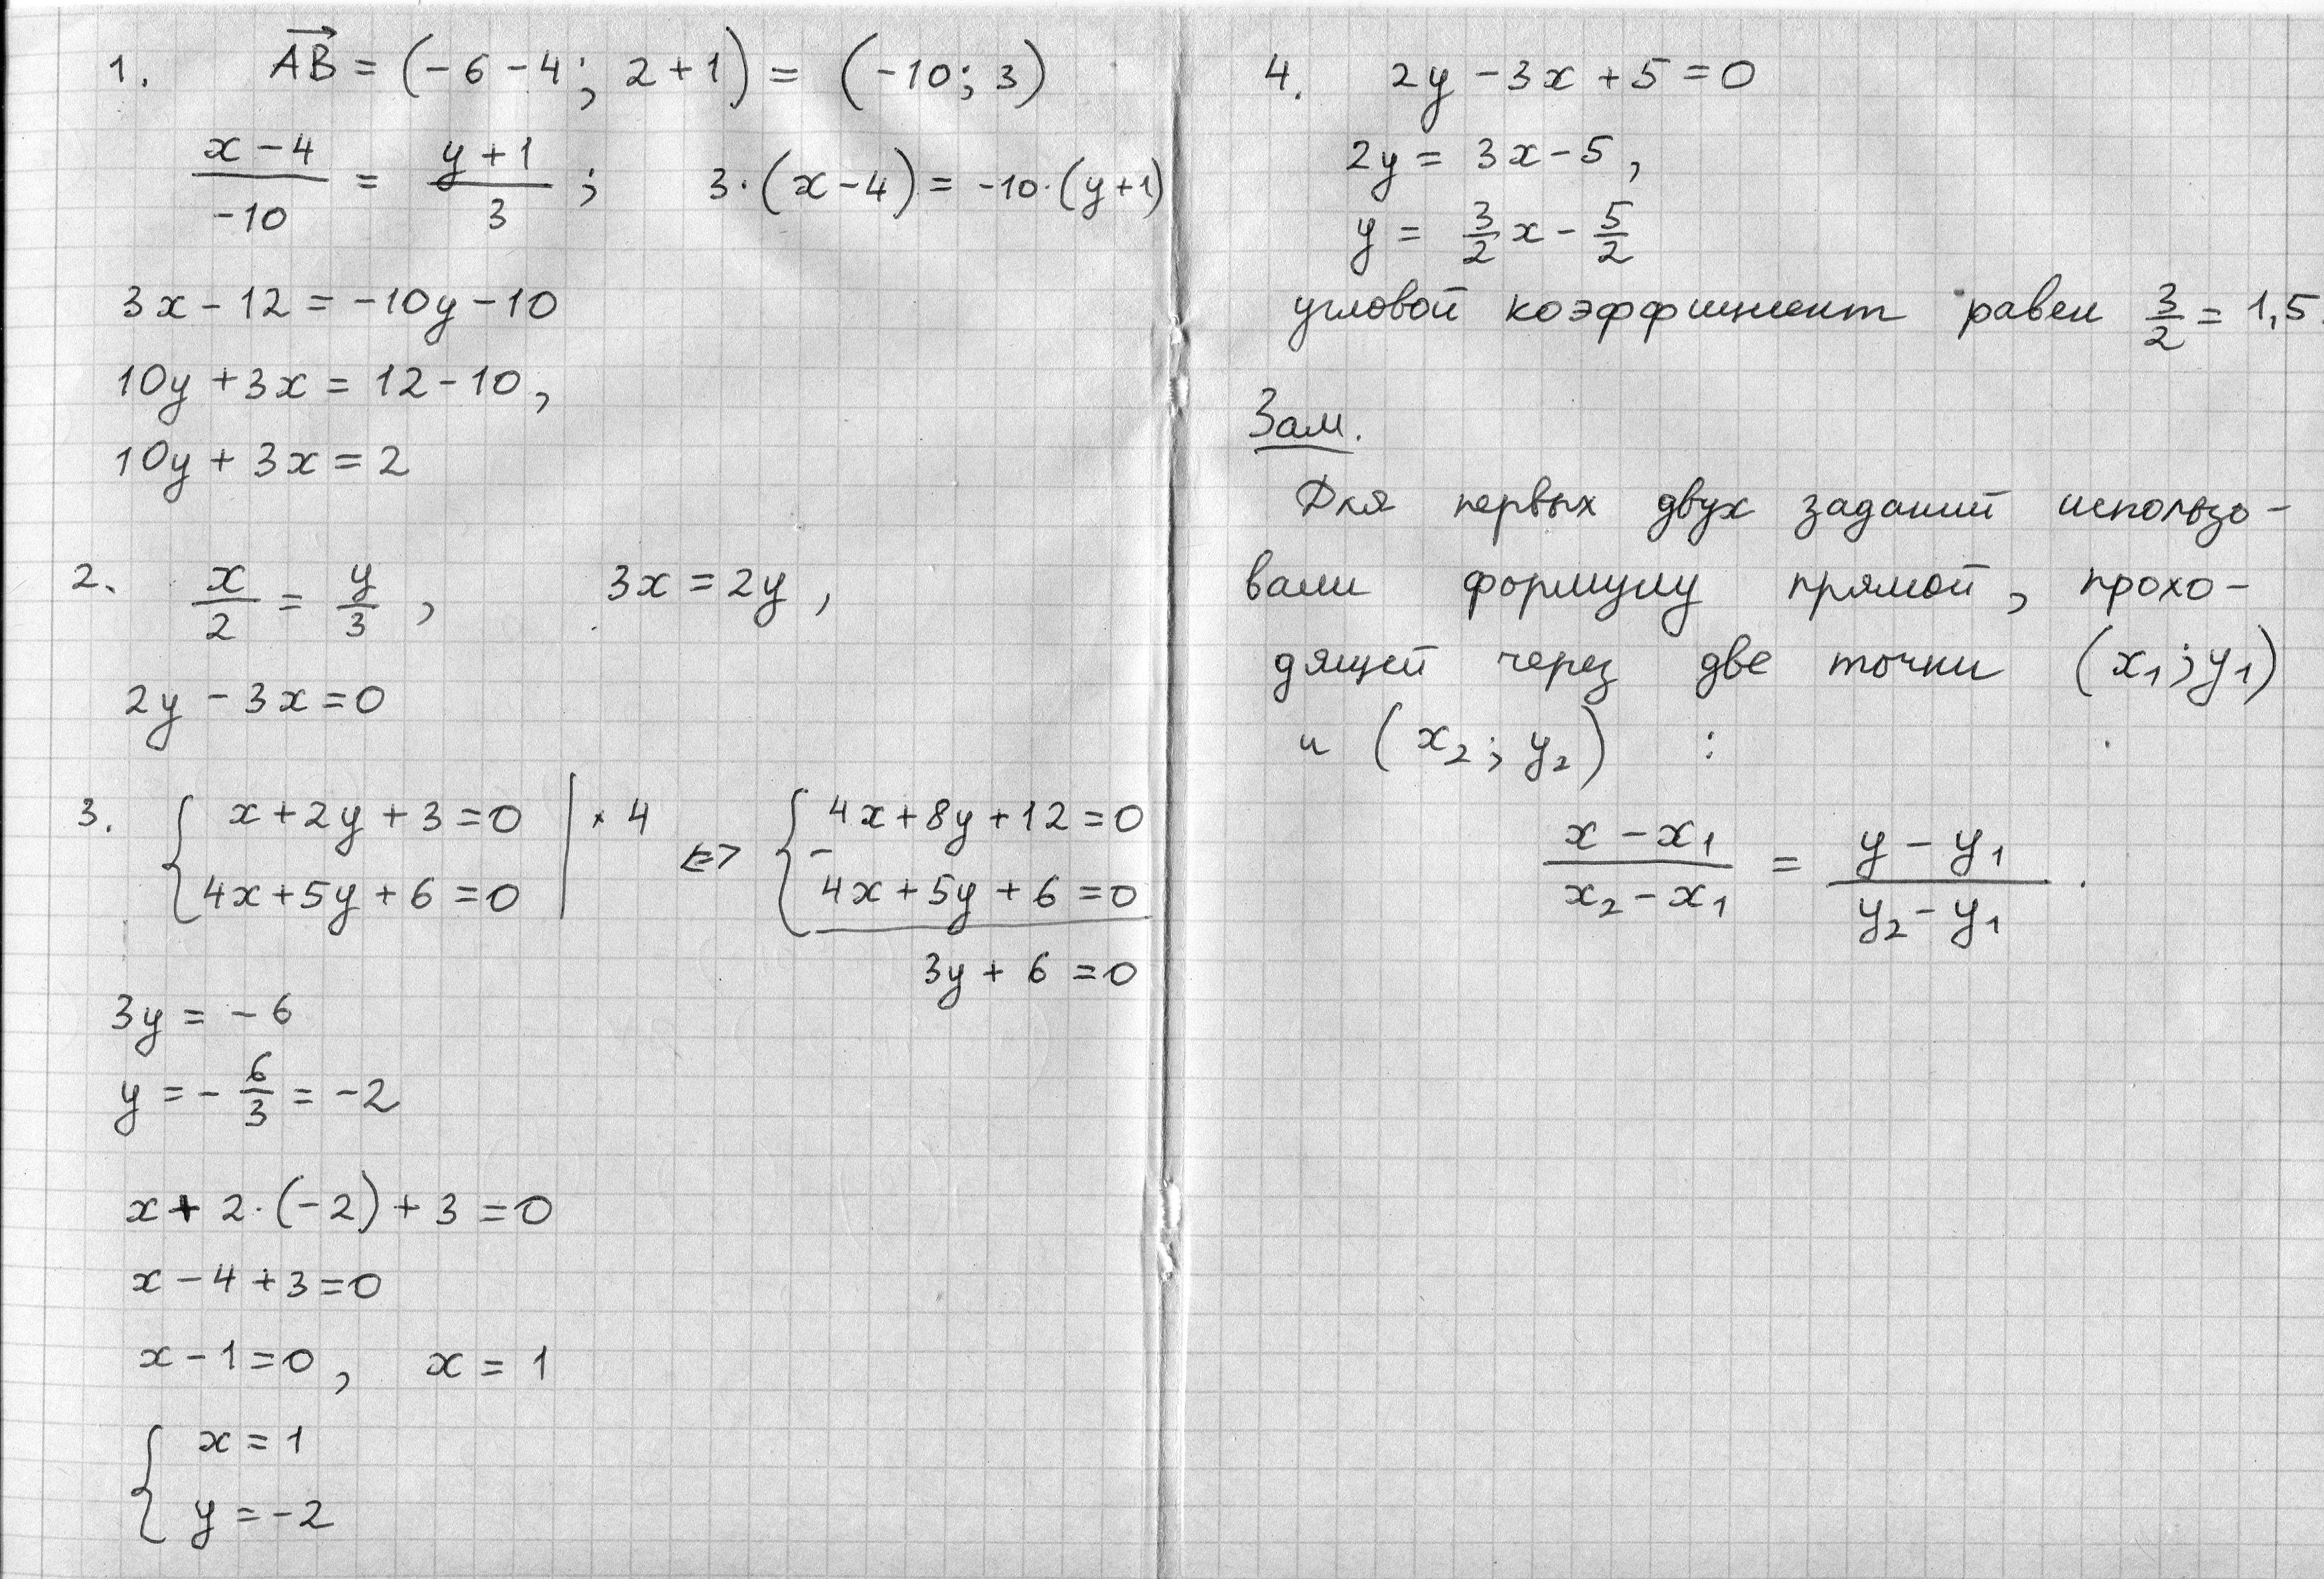 1. AB = (-6-4; 2+1) = (-10; 3)
(x-4)/(-10) = (y+1)/3 ; 3·(x-4) = -10·(y+1)
3x-12 = -10y-10
10y+3x = 12-10,
10y+3x = 2
2. x/2 = y/3 , 3x = 2y ,
2y-3x=0
3. { x+2y+3=0 | × 4 <=> { 4x+8y+12=0
4x+5y+6=0 - 4x+5y+6=0
3y+6=0
3y = -6
y = - 6/3 = -2
x+2·(-2)+3=0
x-4+3=0
x-1=0, x=1
{ x=1
y=-2
4. 2y-3x+5=0
2y = 3x-5,
y = 3/2 x - 5/2
угловой коэффициент равен 3/2 = 1,5.
Зам.
Для первых двух заданий использо-
вали формулу прямой, прохо-
дящей через две точки (x₁; y₁)
и (x₂; y₂) :
(x-x₁)/(x₂-x₁) = (y-y₁)/(y₂-y₁) .